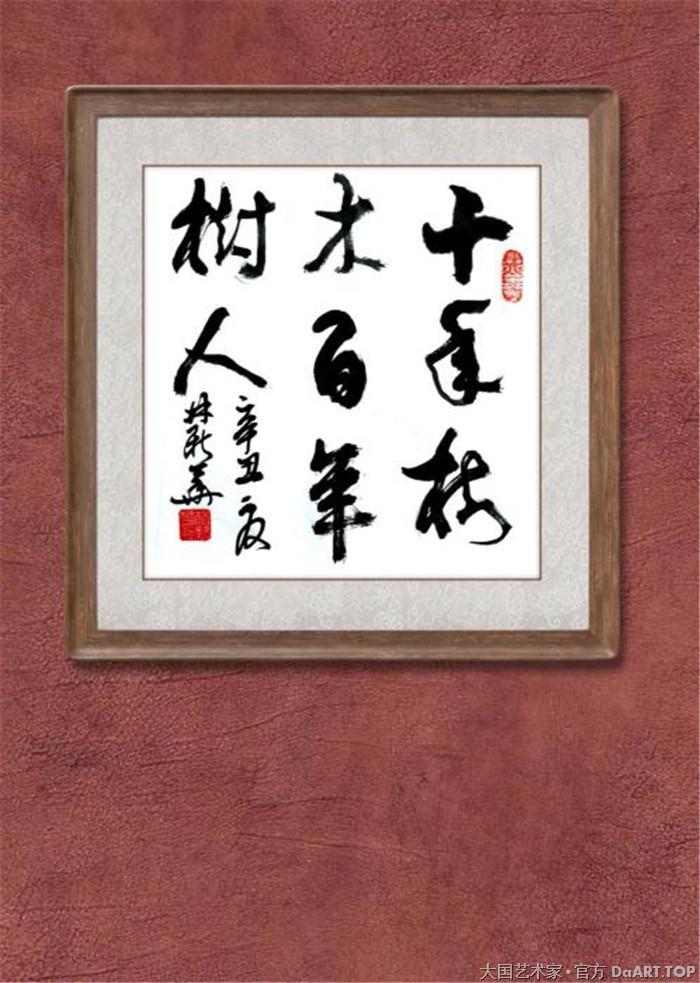 十年树
木百年
樹人
辛丑夏
林新华
大国艺术家·官方 DaART.TOP